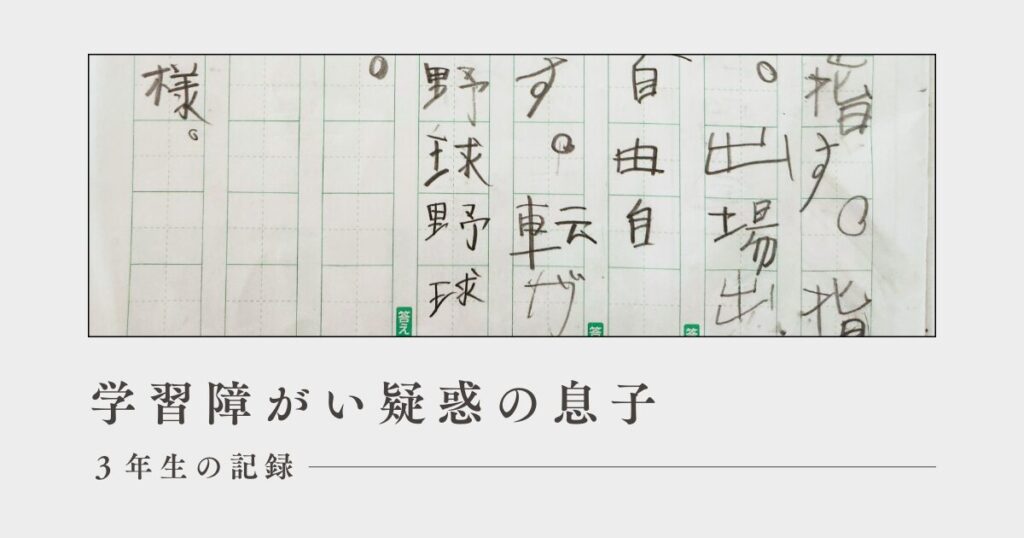 指す。指
。出場出
自由自
す。転が
野球野球
。
様。
答
答
答え
学習障がい疑惑の息子
3年生の記録